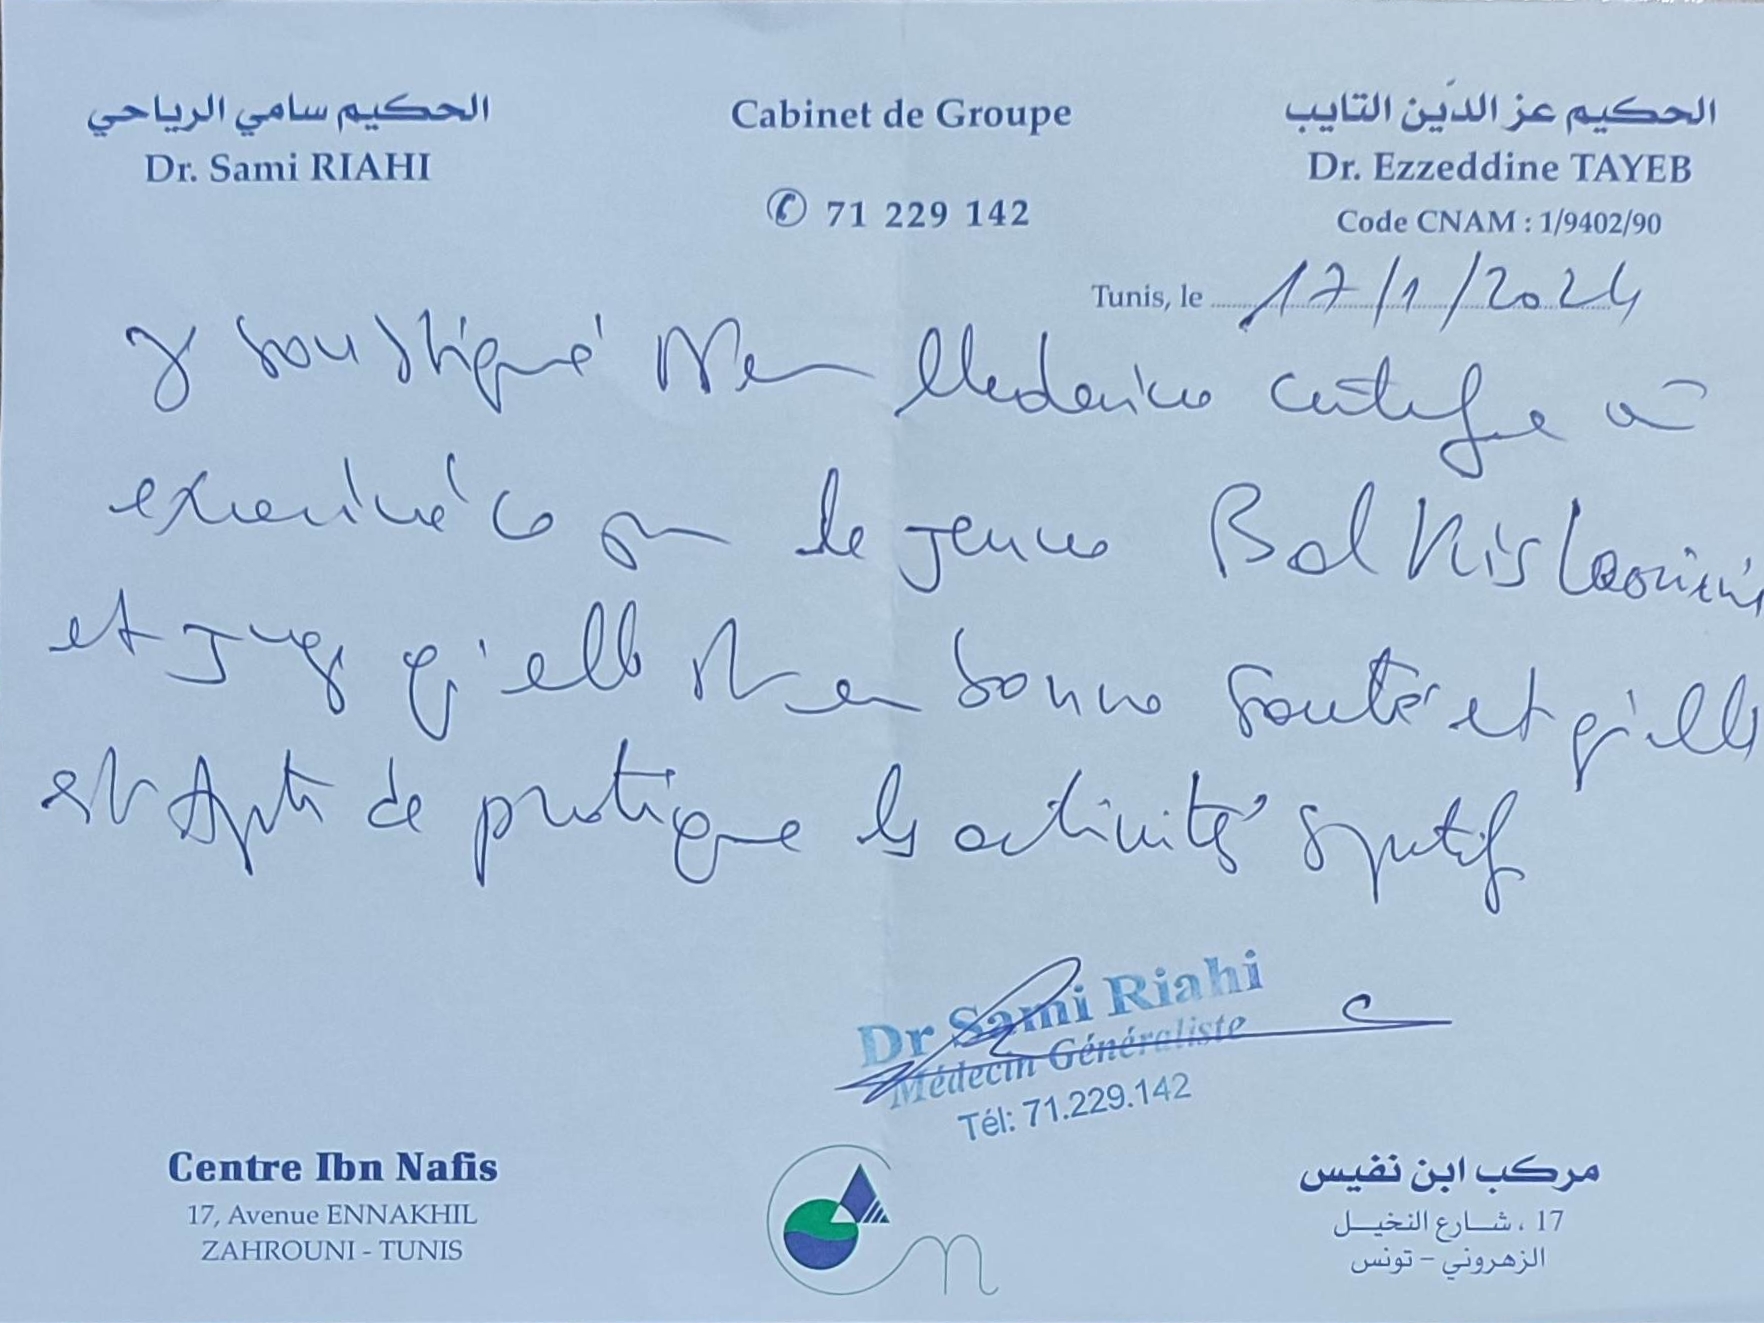 الحكيم سامي الرياحي
Dr. Sami RIAHI
Cabinet de Groupe
✆ 71 229 142
الحكيم عز الدّين التايب
Dr. Ezzeddine TAYEB
Code CNAM : 1/9402/90
Tunis, le 17/1/2024
soussigné en Medecine certifie
examiné ce le jeune Balkis
et juge qu'elle est en bonne santé et qu'elle
est Apte de pratique les activités sportif
Dr Sami Riahi
Médecin Généraliste
Tél: 71.229.142
Centre Ibn Nafis
17, Avenue ENNAKHIL
ZAHROUNI - TUNIS
مركب ابن نفيس
17 ، شارع النخيل
الزهروني - تونس